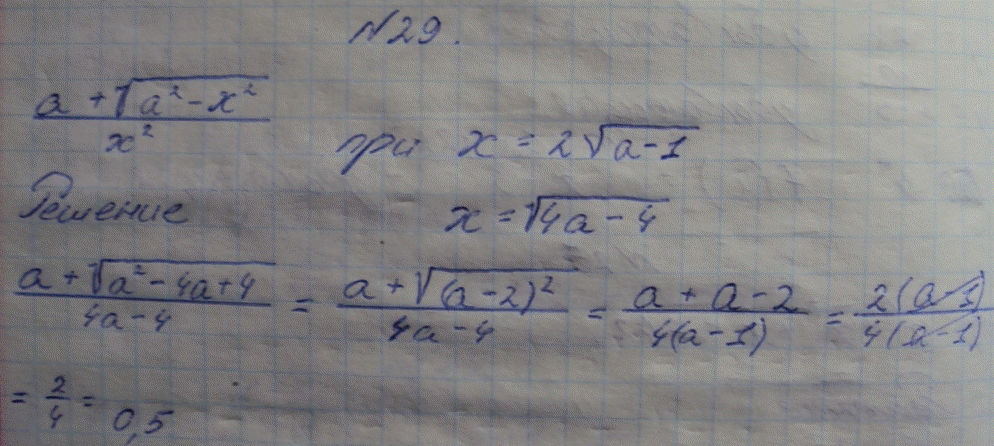 №29.
(a + √(a² - x²)) / x² при x = 2√(a-1)
Решение x = √(4a - 4)
(a + √(a² - 4a + 4)) / (4a - 4) = (a + √((a - 2)²)) / (4a - 4) = (a + a - 2) / (4(a - 1)) = (2(a - 1)) / (4(a - 1))
= 2/4 = 0,5